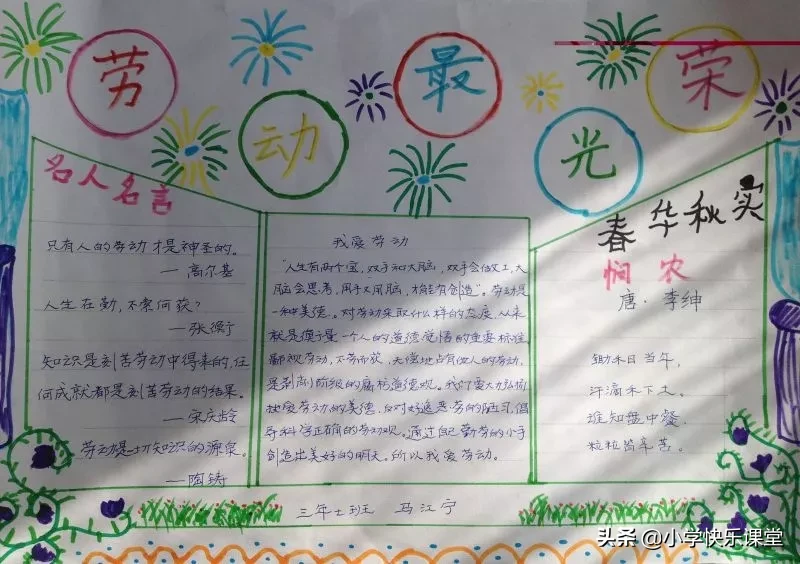 劳动最光荣
名人名言
只有人的劳动才是神圣的。
—高尔基
人生在勤,不索何获?
—张衡
知识是刻苦劳动中得来的,任
何成就都是刻苦劳动的结果。
—宋庆龄
劳动是一切知识的源泉。
—陶铸
我爱劳动
"人生有两个宝,双手和大脑,双手会做工,大
脑会思考,用手又用脑,才能有创造"。劳动是
一种美德。对劳动采取什么样的态度,从来
就是衡量一个人的道德觉悟的重要标准
鄙视劳动,不劳而获,无偿地占有他人的劳动,
是剥削阶级的腐朽道德观。我们要大力弘扬
热爱劳动的美德,反对好逸恶劳的陋习,倡
导科学正确的劳动观。通过自己勤劳的小手
创造出美好的明天。所以我爱劳动。
春华秋实
悯农
唐·李绅
锄禾日当午,
汗滴禾下土。
谁知盘中餐,
粒粒皆辛苦。
三年七班 马江宁
头条 @小学快乐课堂